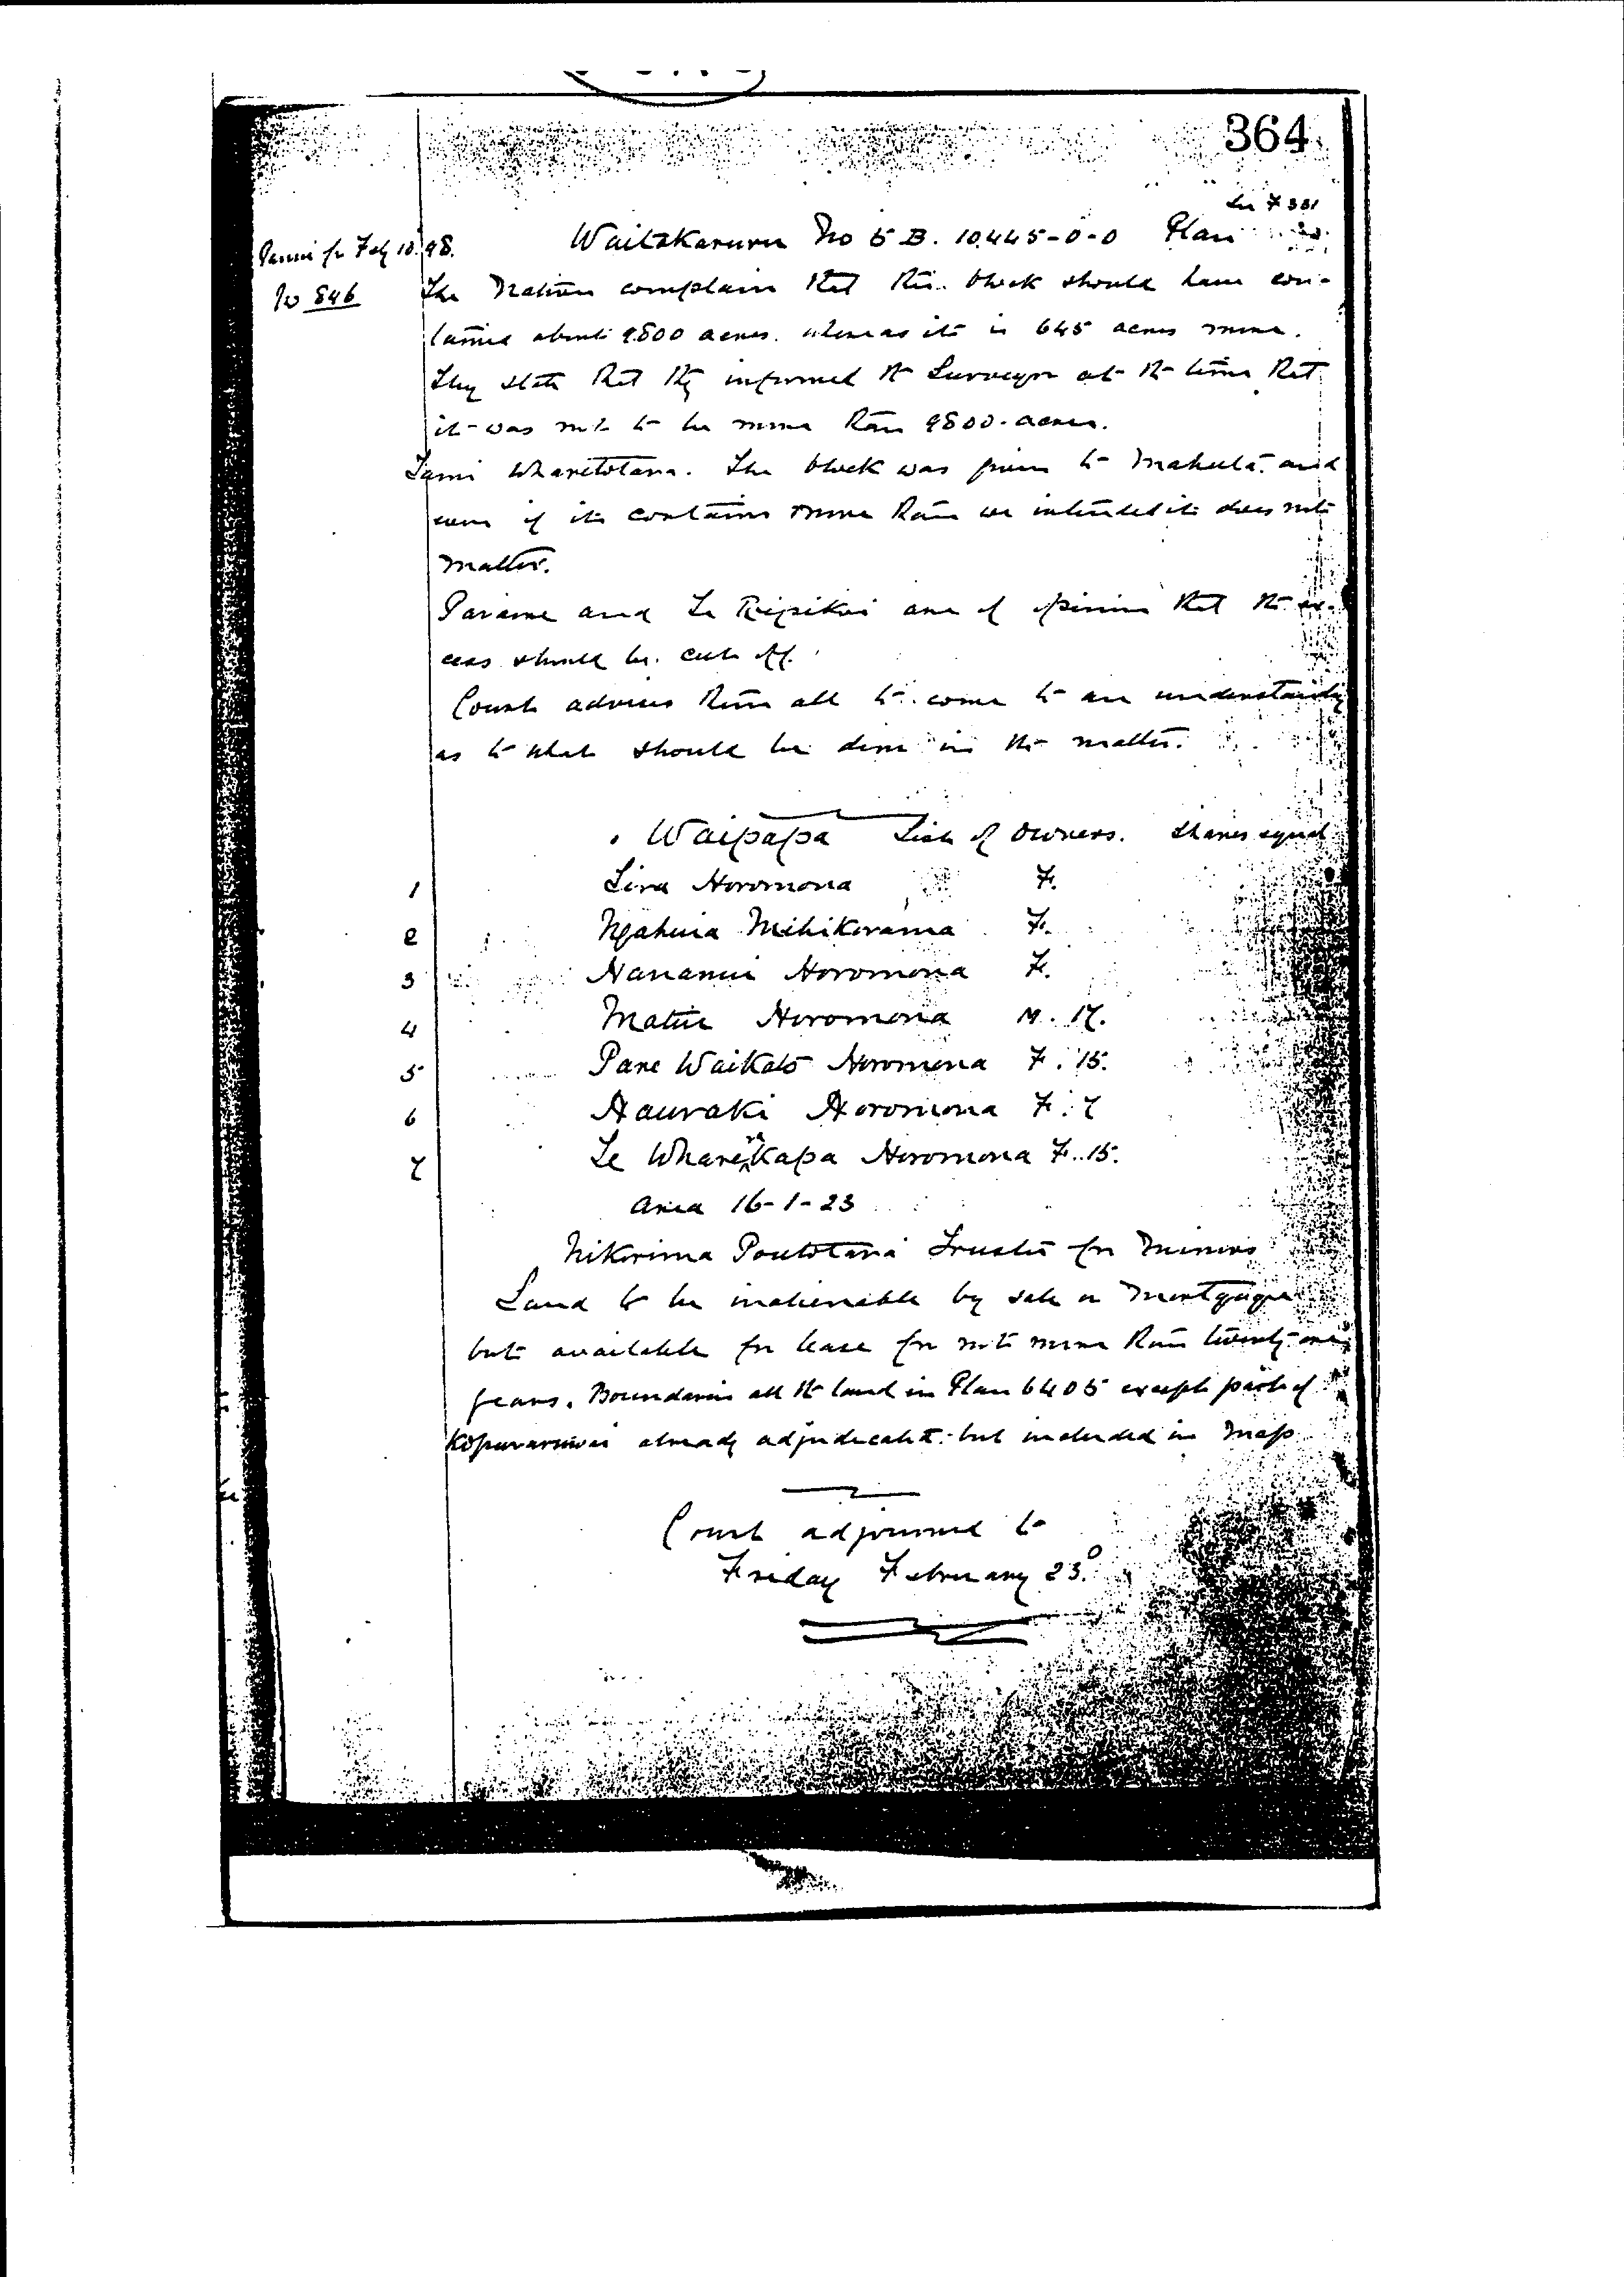 364
See F 381
Panui for Feby 10. 98.
No 846
Waitakaruru No 5 B. 10.445-0-0 Plan
The Natives complain that this block should have con-
tained about 9800 acres. whereas it is 645 acres more.
They state that they informed the Surveyor at the time that
it was not to be more than 9800 acres.
Tami Wharetotara. The block was given to and
even if it contains more than we intended it does not
matter.
Parame and Te Ripikoi are of opinion that the ex-
cess should be cut off.
Court advises them all to come to an understanding
as to what should be done in the matter.
Waipapa List of Owners. Shares equal
1 Lira Horomona F.
2 Ngahuia Mihikorama F.
3 Horomona F.
4 Matiu Horomona M. 17.
5 Pare Waikato Horomona F. 15.
6 Hauraki Horomona F. 7
7 Te Wharerakapa Horomona F. 15.
Area 16-1-23
Nikorima Poutotara Trustee for Minors
Land to be inalienable by sale or Mortgage
but available for lease for not more than twenty-one
years. Boundaries all the land in Plan 6405 except part of
Kopuraruwai already adjudicated. but included in Map
Court adjourned to
Friday February 23.